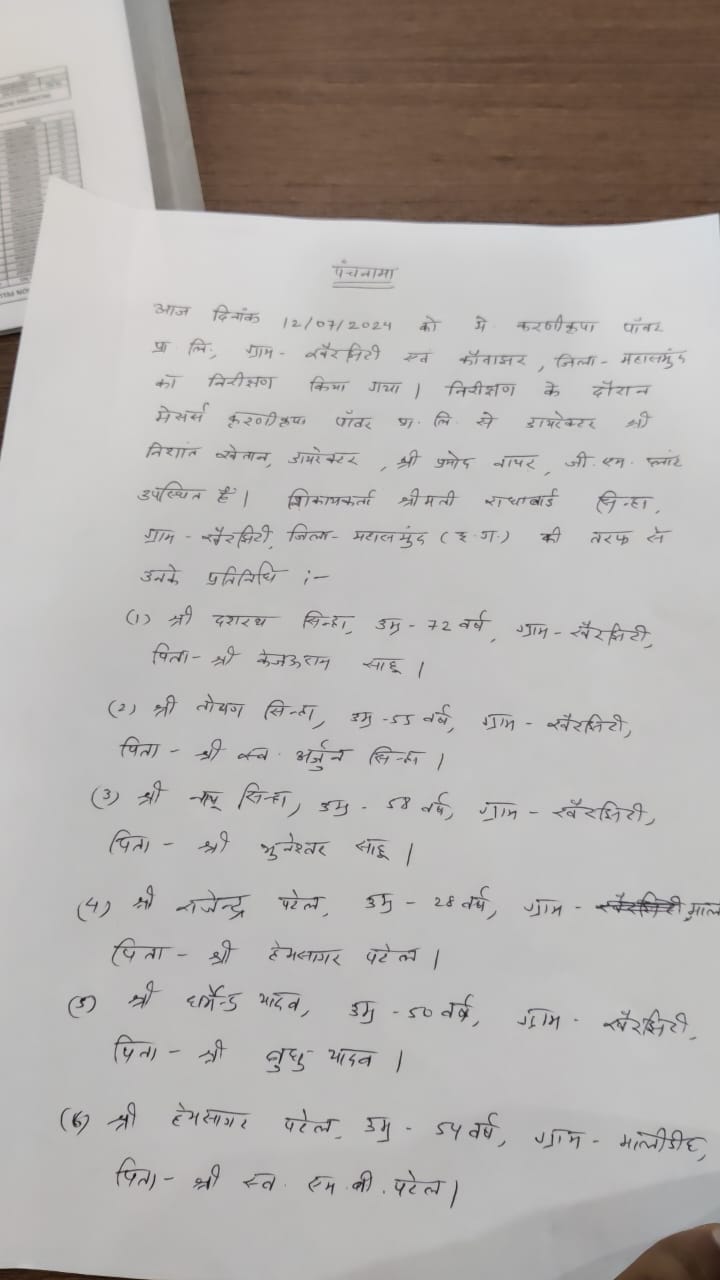 पंचनामा
आज दिनांक 12/07/2024 को मे करणीकृपा पॉवर
प्रा लि, ग्राम - खैरझिटी एवं कौवाझर, जिला - महासमुंद
का निरीक्षण किया गया। निरीक्षण के दौरान
मेसर्स करणीकृपा पॉवर प्रा. लि. से डायरेक्टर श्री
निशांत खेतान, डायरेक्टर, श्री प्रमोद नायर, जी. एम. प्लांट
उपस्थित हैं। शिकायकर्ता श्रीमती राधाबाई सिन्हा,
ग्राम - खैरझिटी, जिला - महासमुंद (छ.ग.) की तरफ से
उनके प्रतिनिधि :-
(1) श्री दशरथ सिन्हा, उम्र - 72 वर्ष, ग्राम - खैरझिटी,
पिता - श्री केजऊराम साहू।
(2) श्री सिन्हा, उम्र - 55 वर्ष, ग्राम - खैरझिटी,
पिता - श्री स्व. अर्जुन सिन्हा।
(3) श्री सिन्हा, उम्र - 58 वर्ष, ग्राम - खैरझिटी,
पिता - श्री भुनेश्वर साहू।
(4) श्री राजेन्द्र पटेल, उम्र - 28 वर्ष, ग्राम -
पिता - श्री हेमसागर पटेल।
(5) श्री धर्मेन्द्र यादव, उम्र - 50 वर्ष, ग्राम - खैरझिटी,
पिता - श्री बुधु यादव।
(6) श्री हेमसागर पटेल, उम्र - 54 वर्ष, ग्राम - मालीडीह,
पिता - श्री स्व. एम. बी. पटेल।